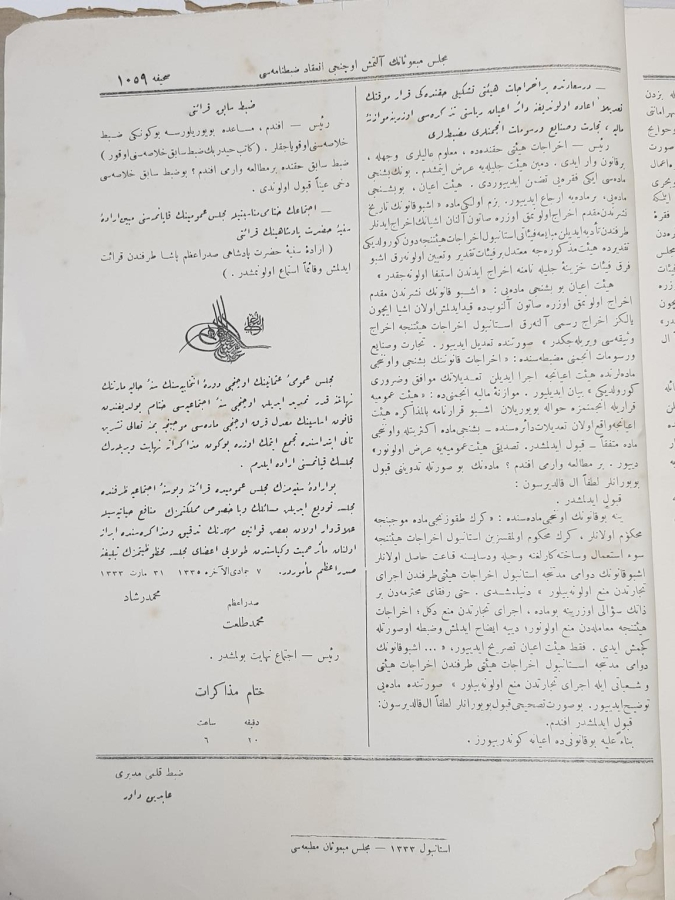 مجلس مبعوثانك آلتمش اوچنجی انعقاد ضبطنامه‌سی
صحیفه ١٠٥٩
ــ درسعادتده بر اخراجات هیئتی تشکیلی حقنده‌کی قرار موقتك
تعدیلاً اعاده اولوندیغنه دائر اعیان ریاستی تذکره‌سی اوزرینه موازنهٔ
مالیه ، تجارت وصنایع ورسومات انجمنلری مضبطه‌لری
رئیس — اخراجات هیئتی حقنده‌ده ، معلوم عالیلری وجهله ،
برقانون وار ایدی . دمین هیئت جلیله‌یه عرض ایتمشدم . بونك بشنجی
ماده‌سی ایکی فقره‌یی تضمن ایدییوردی . هیئت اعیان . بو بشنجی
ماده‌یی ، بر ماده‌یه ارجاع ایدییور . بزم اولکی ماده « اشبو قانونك تاریخ
نشرندن مقدم اخراج اولونمق اوزره صاتون آلنان اشیانك اخراج ایدنلر
طرفندن تأدیه ایدیلن مبایعه فیئاتی استانبول اخراجات هیئتنجه دون کورولدیکی
تقدیرده هیئت مذکوره‌جه معتدل بر فیئات تقدیر وتعیین اولونه‌رق اشبو
فرق فیئات خزینهٔ جلیله نامنه اخراج ایدندن استیفا اولونه‌جقدر »
هیئت اعیان بو بشنجی ماده‌یی : « اشبو قانونك نشرندن مقدم
اخراج اولونمق اوزره صاتون آلنوب‌ده قید ایدلمش اولان اشیا ایچون
یالکز اخراج رسمی آلنه‌رق استانبول اخراجات هیئتنجه اخراج
وثیقه‌سی ویریله‌جکدر » صورتنده تعدیل ایدییور . تجارت وصنایع
ورسومات انجمنی مضبطه‌سنده : « اخراجات قانوننك بشنجی واونجی
ماده‌لرنده هیئت اعیانجه اجرا ایدیلن تعدیلاتك موافق وضروری
کورولدیکی » بیان ایدیلیور . موازنهٔ مالیه انجمنی‌ده : « هیئت عمومیه
قراریله انجمنمزه حواله بویوریلان اشبو قرارنامه بالمذاکره هیئت
اعیانجه واقع اولان تعدیلات دائره‌سنده ـ بشنجی ماده اکثریتله واونجی
ماده متفقاً ـ قبول ایدلمشدر. تصدیقی هیئت عمومیه‌یه عرض اولونور»
دییور . بر مطالعه وارمی افندم ؟ ماده‌نك بو صورتله تدویننی قبول
بویورانلر لطفاً ال قالدیرسون :
قبول ایدلمشدر .
ینه بوقانونك اونجی ماده‌سنده : « کرك طقوزنجی ماده موجبنجه
محکوم اولانلر ، کرك محکوم اولمقسزین استانبول اخراجات هیئتنجه
سوء استعمال وساخته‌کارلغنه وحیله ودسایسنه قناعت حاصل اولانلر
اشبو قانونك دوامی مدتنجه استانبول اخراجات هیئتی طرفندن اجرای
تجارتدن منع اولونه‌بیلور » دنیلمشدی . حتی رفقای محترمه‌دن بر
ذاتك سؤالی اوزرینه بوماده ، اجرای تجارتدن منع دکل ؛ اخراجات
هیئتنجه معامله‌دن منع اولونور ؛ دییه ایضاح ایدلمش وضبطه اوصورتله
کچمش ایدی . فقط هیئت اعیان تصریح ایدییور، « ... اشبو قانونك
دوامی مدتنجه استانبول اخراجات هیئتی طرفندن اخراجات هیئتی
وشعباتی ایله اجرای تجارتدن منع اولونه‌بیلور » صورتنده ماده‌یی
توضیح ایدییور . بو صورت تصحیحی قبول بویورانلر لطفاً ال قالدیرسون:
قبول ایدلمشدر افندم.
بناءً علیه بو قانونی‌ده اعیانه کوندرییورز .
ضبط سابق قرائتی
رئیس — افندم ، مساعده بویوریلورسه بوکونکی ضبط
خلاصه‌سنی اوقویاجقلر . ( کاتب حیدر بك ضبط سابق خلاصه‌سنی اوقور )
ضبط سابق حقنده بر مطالعه وارمی افندم ؟ بو ضبط سابق خلاصه‌سی
دخی عیناً قبول اولوندی .
ــ اجتماعك ختامی مناسبتیله مجلس عمومینك قاپانمه‌سنی مبین ارادهٔ
سنیهٔ حضرت پادشاهینك قرائتی
( ارادهٔ سنیهٔ حضرت پادشاهی صدراعظم پاشا طرفندن قرائت
ایدلمش وقائماً استماع اولونمشدر . )
مجلس عمومیٔ عثمانینك اوچنجی دورهٔ انتخابیه‌سنك سنهٔ حالیه مارتنك
نهایتنه قدر تمدید ایدیلن اوچنجی سنهٔ اجتماعیه‌سی ختام بولدیغندن
قانون اساسینك معدل قرق اوچنجی ماده‌سی موجبنجه بمنه تعالی تشرین
ثانی ابتداسنده تجمع ایتمك اوزره بوکون مذاکراته نهایت ویریلەرك
مجلسك قپانمسنی اراده ایلدم .
بو ارادهٔ سنیه‌مزك مجلس عمومیده قرائتنه وبو سنهٔ اجتماعیه ظرفنده
مجلسه تودیع ایدیلن مسائلك وباخصوص مملکتمزك منافع حیاتیه‌سیله
علاقه‌دار اولان بعض قوانین مهمه‌نك تدقیق ومذاکره‌سنده ابراز
اولنان مآثر حمیت وکیاستدن طولایی اعضای مجلسه محظوظیتمزك تبلیغنه
صدراعظم مأموردر. ٧ جمادی الآخره ١٣٣٥ ٣١ مارت ١٣٣٣
محمد رشاد
صدراعظم
محمد طلعت
رئیس — اجتماع نهایت بولمشدر .
ختام مذاکرات
ساعت دقیقه
٦ ٢٠
ضبط قلمی مدیری
عابدین داور
استانبول ١٣٣٣ — مجلس مبعوثان مطبعه‌سی